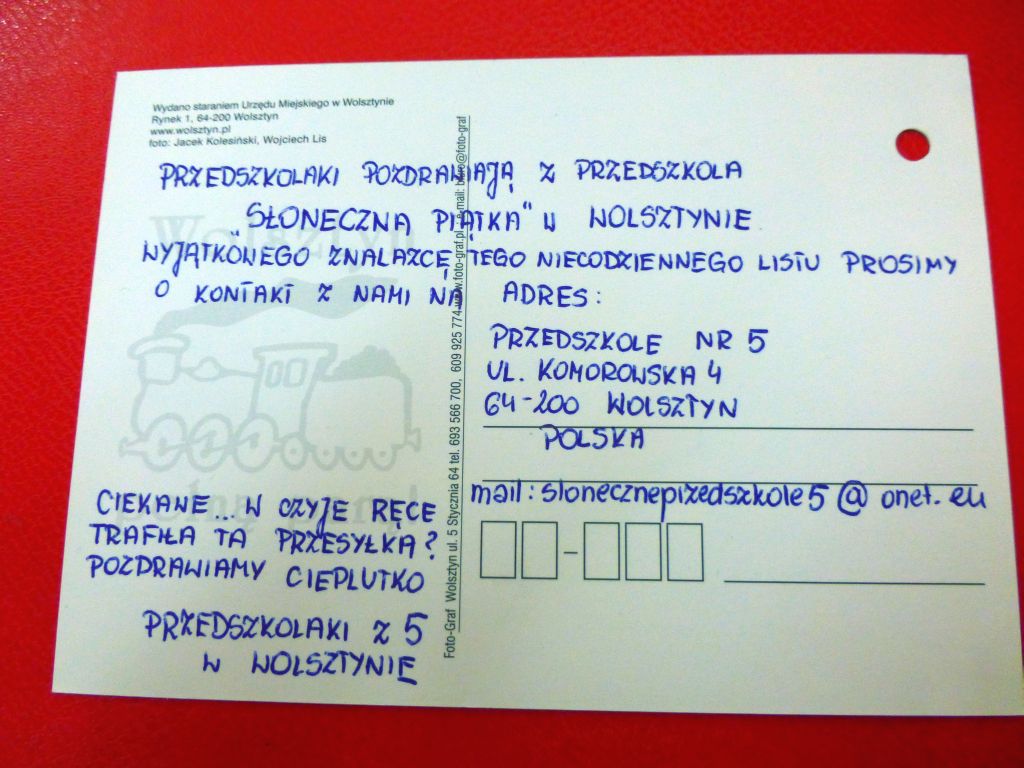 Wydano staraniem Urzędu Miejskiego w Wolsztynie
Rynek 1, 64-200 Wolsztyn
www.wolsztyn.pl
foto: Jacek Kolesiński, Wojciech Lis
PRZEDSZKOLAKI POZDRAWIAJĄ Z PRZEDSZKOLA
"SŁONECZNA PIĄTKA" W WOLSZTYNIE
WYJĄTKOWEGO ZNALAZCĘ TEGO NIECODZIENNEGO LISTU PROSIMY
O KONTAKT Z NAMI NA ADRES:
PRZEDSZKOLE NR 5
UL. KOMOROWSKA 4
64-200 WOLSZTYN
POLSKA
mail: sloneczneprzedszkole5@onet.eu
CIEKAWE... W CZYJE RĘCE
TRAFIŁA TA PRZESYŁKA?
POZDRAWIAMY CIEPLUTKO
PRZEDSZKOLAKI Z 5
W WOLSZTYNIE
Foto-Graf Wolsztyn ul. 5 Stycznia 64 tel. 693 566 700, 609 925 774 www.foto-graf.pl e-mail: biuro@foto-graf
Wolsztyn
pełną parą!